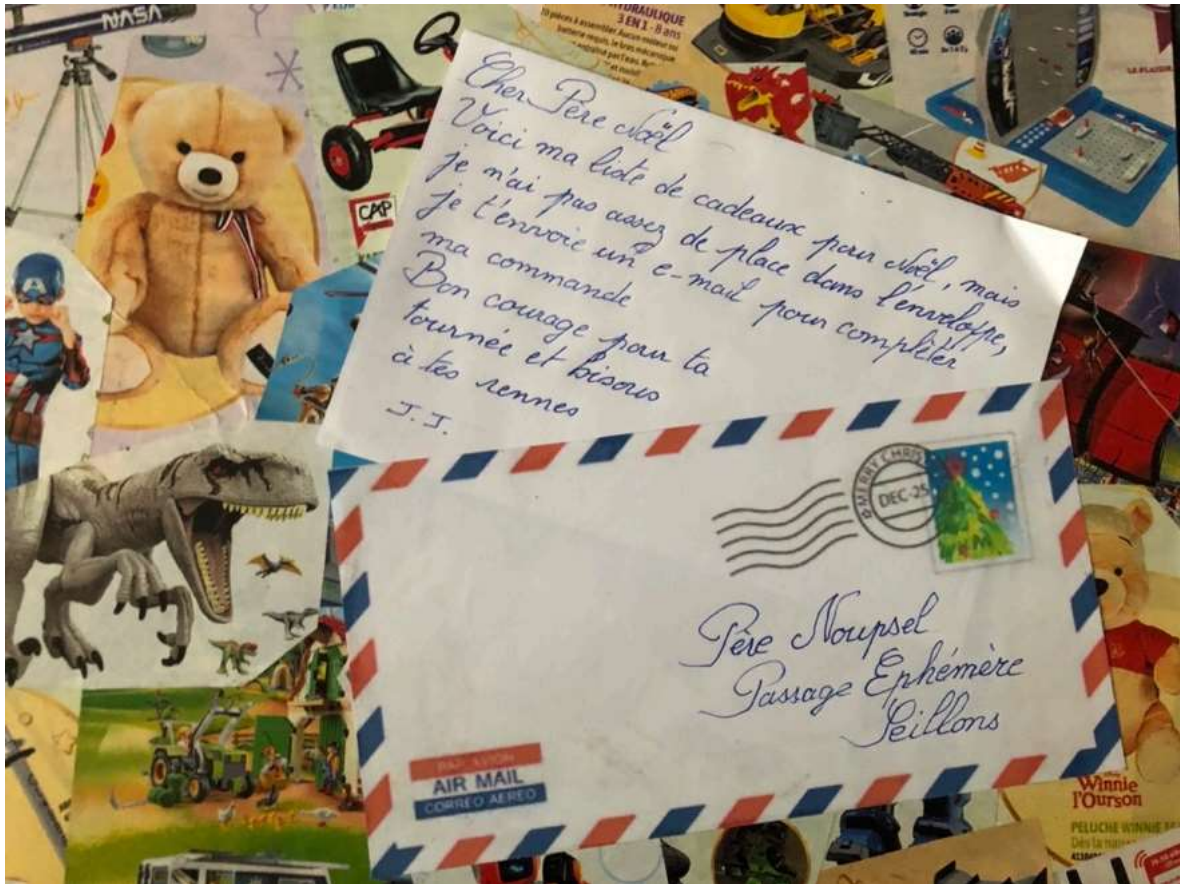 NASA
HYDRAULIQUE
3 EN 1 - 8 ans
CAP
Cher Père Noël
Voici ma liste de cadeaux pour Noël, mais
je n'ai pas assez de place dans l'enveloppe,
je t'envoie un e-mail pour complèter
ma commande
Bon courage pour ta
tournée et bisous
à tes rennes
J.J.
MERRY CHRIS
DEC-25
Père Noupsel
Passage Ephémère
Seillons
PAR AVION
AIR MAIL
CORREO AEREO
Winnie
l'Ourson
PELUCHE WINNIE